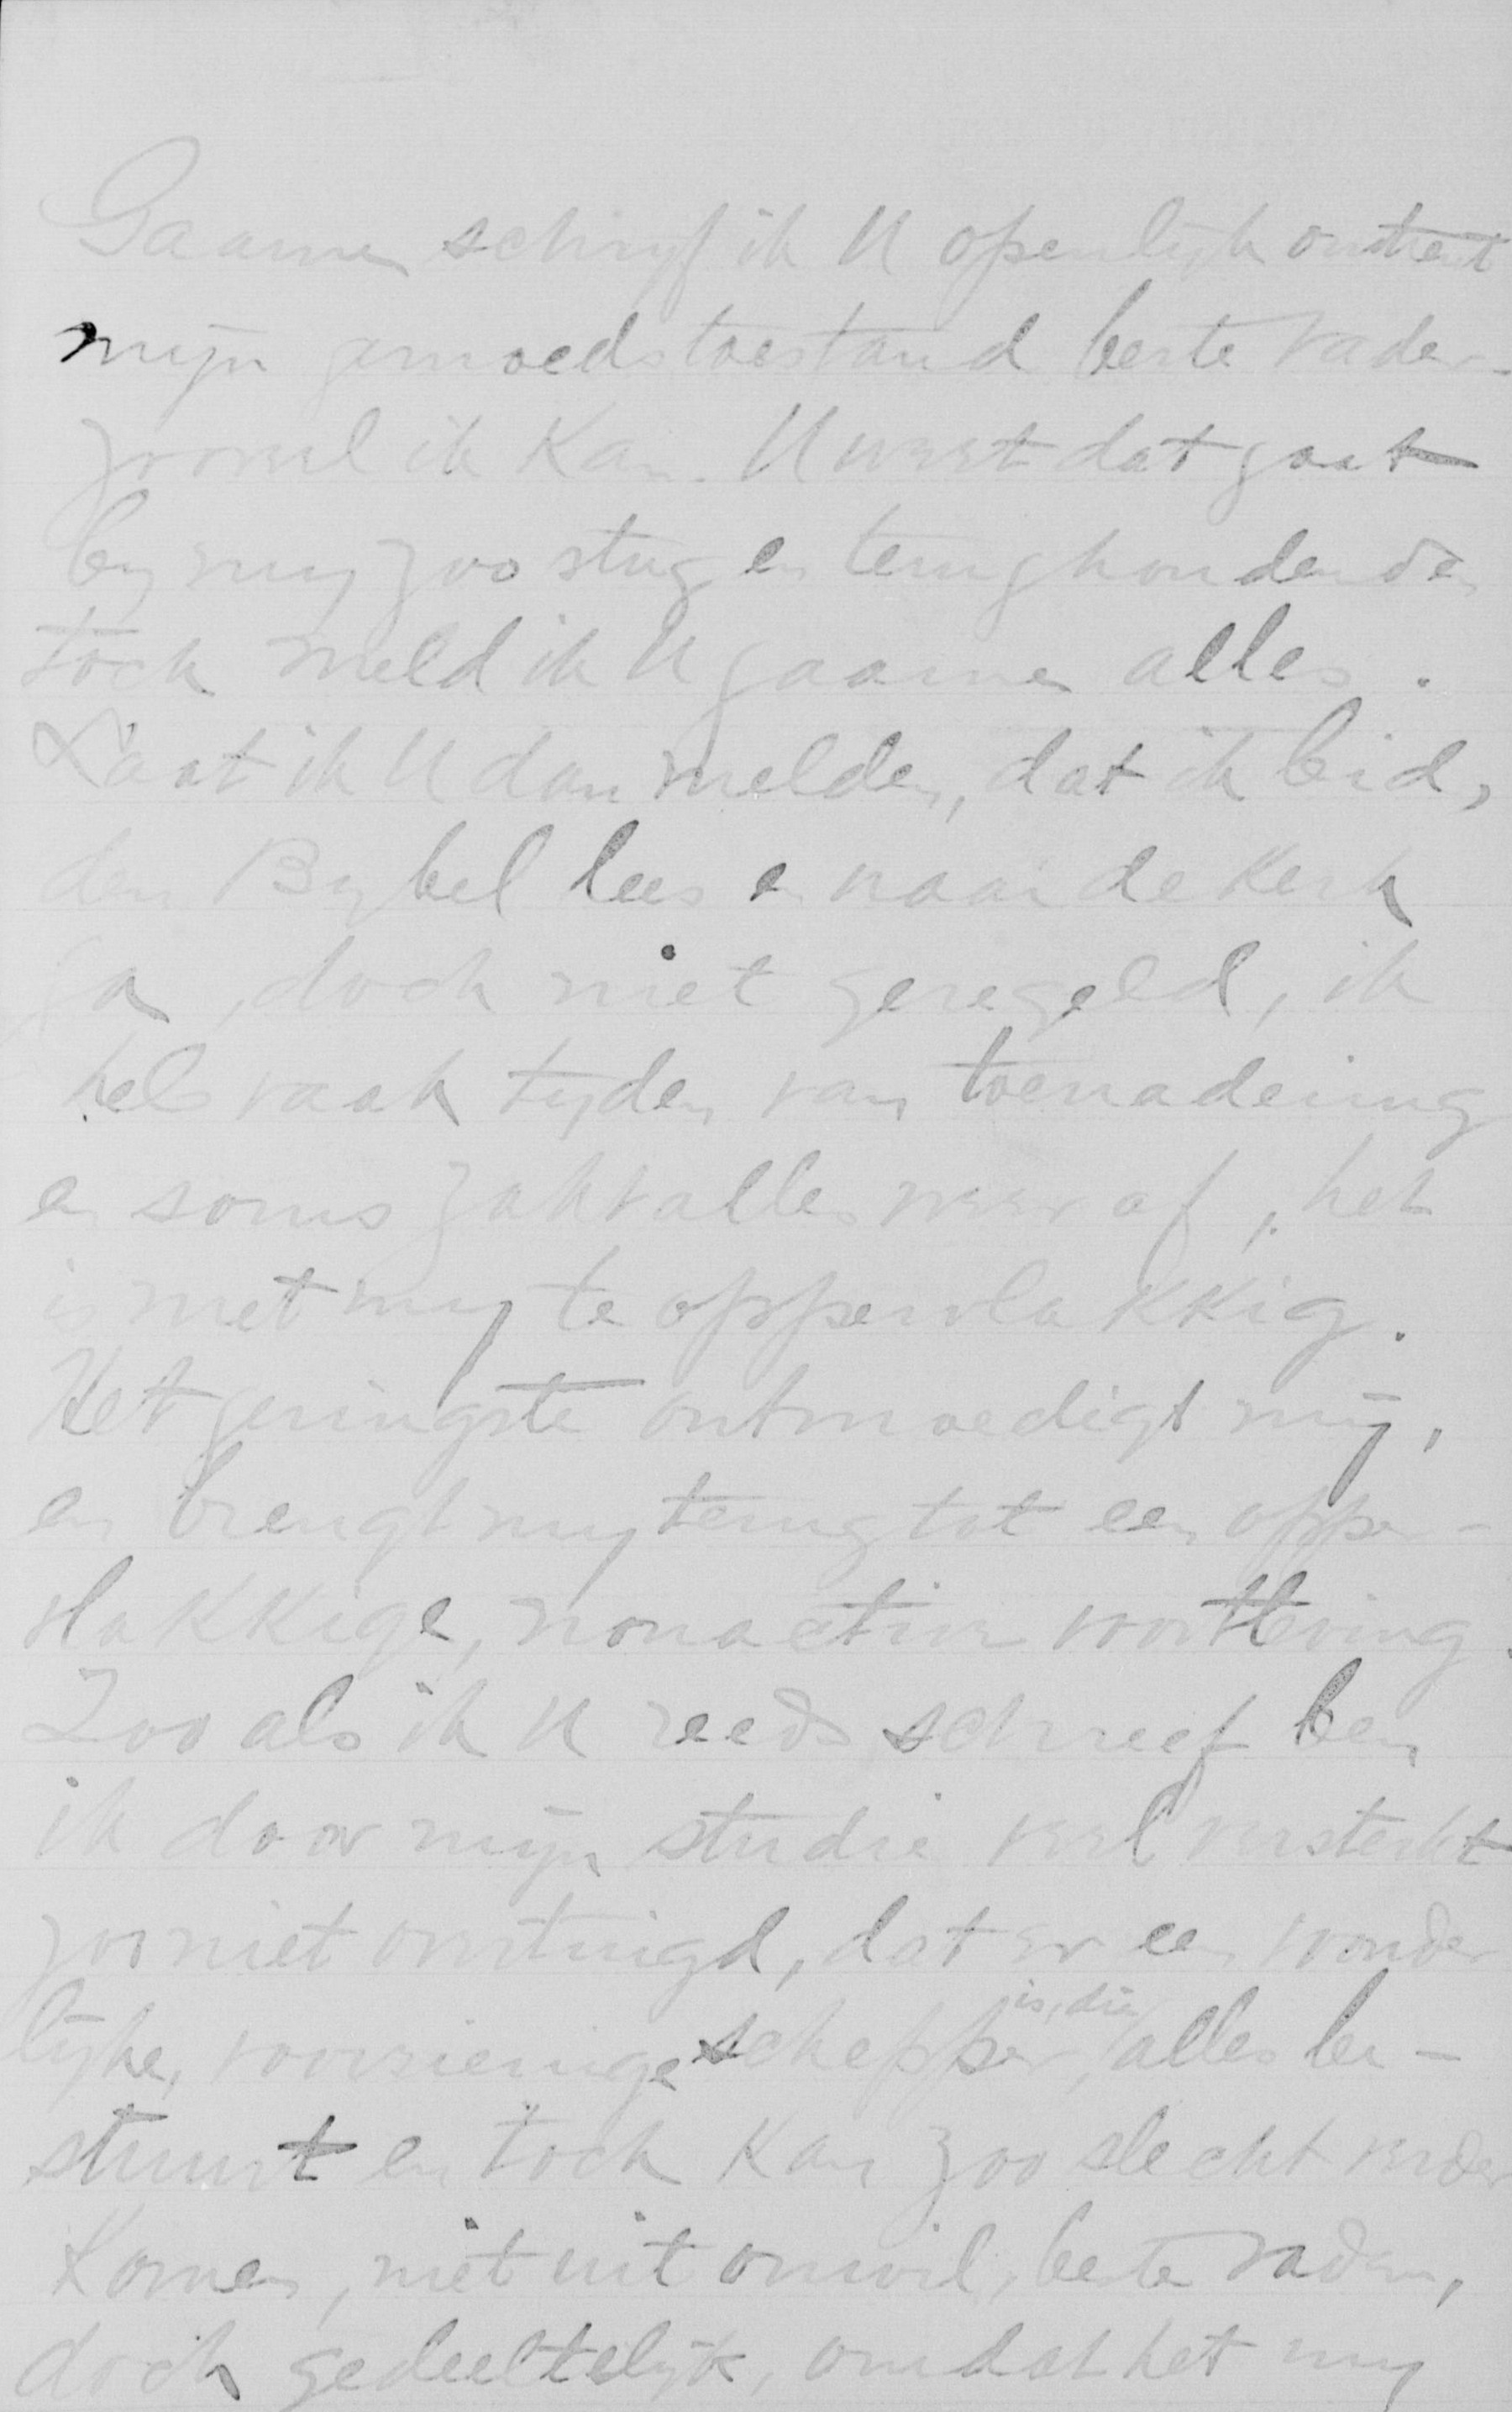 Gaarne schrijf ik U openlijk omtrent
mijn gemoedstoestand beste Vader-
zooveel ik Kan. U weet dat gaat
bij mij zoo stug en terughoudend en
toch meld ik U gaarne alles.
Laat ik U dan melden, dat ik bid,
den Bijbel lees en naar de Kerk
ga, doch niet geregeld, ik
heb vaak tijden van toenadering
en soms zakt alles weer af, het
is met mij te oppervlakkig.
Het geringste ontmoedigt mij,
en brengt mij terug tot een opper-
vlakkige, nonactieve voortleving.
Zooals ik U reeds schreef ben
ik door mijn studie veel versterkt
zooniet overtuigd, dat er een wonder
lijke, voorzienige schepper is, die alles be-
stuurt en toch Kan zoo slecht verder
Komen, niet uit onwil, beste Vader,
doch gedeeltelijk, omdat het mij